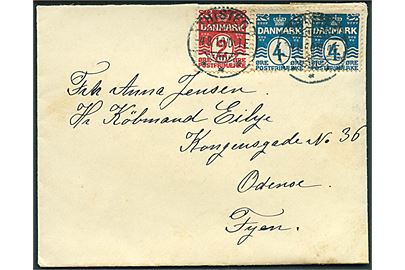 DANMARK
2
ØRE ØRE
POSTFRIMÆRKE
DANMARK
4
ØRE ØRE
POSTFRIMÆRKE
DANMARK
4
ØRE ØRE
POSTFRIMÆRKE
Frk Anna Jensen.
Hr Köbmand Eilye
Kongensgade No 36
Odense.
Fyen.